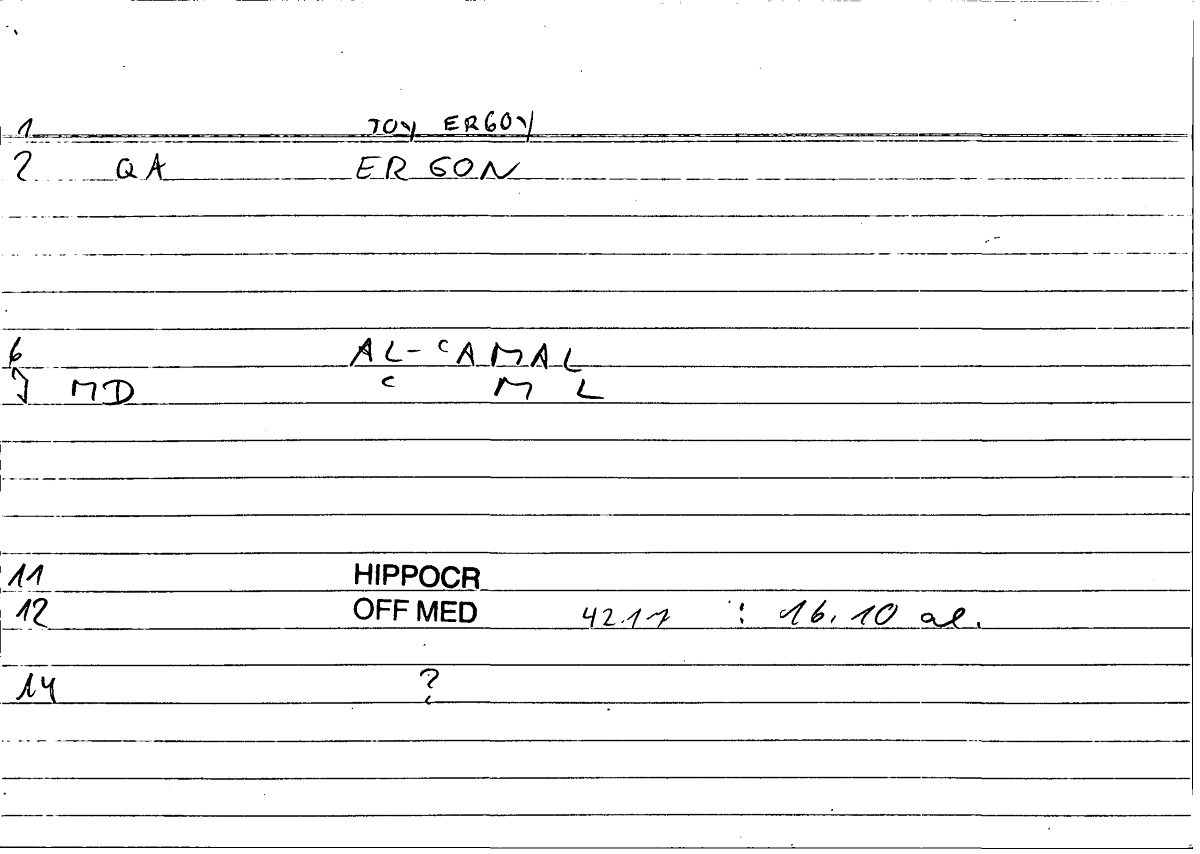 1 TOY ERGOY
2 QA ERGON
6 AL-ᶜAMAL
7 MD ᶜ M L
11 HIPPOCR
12 OFF MED 42.17 : 16.10 al.
14 ?